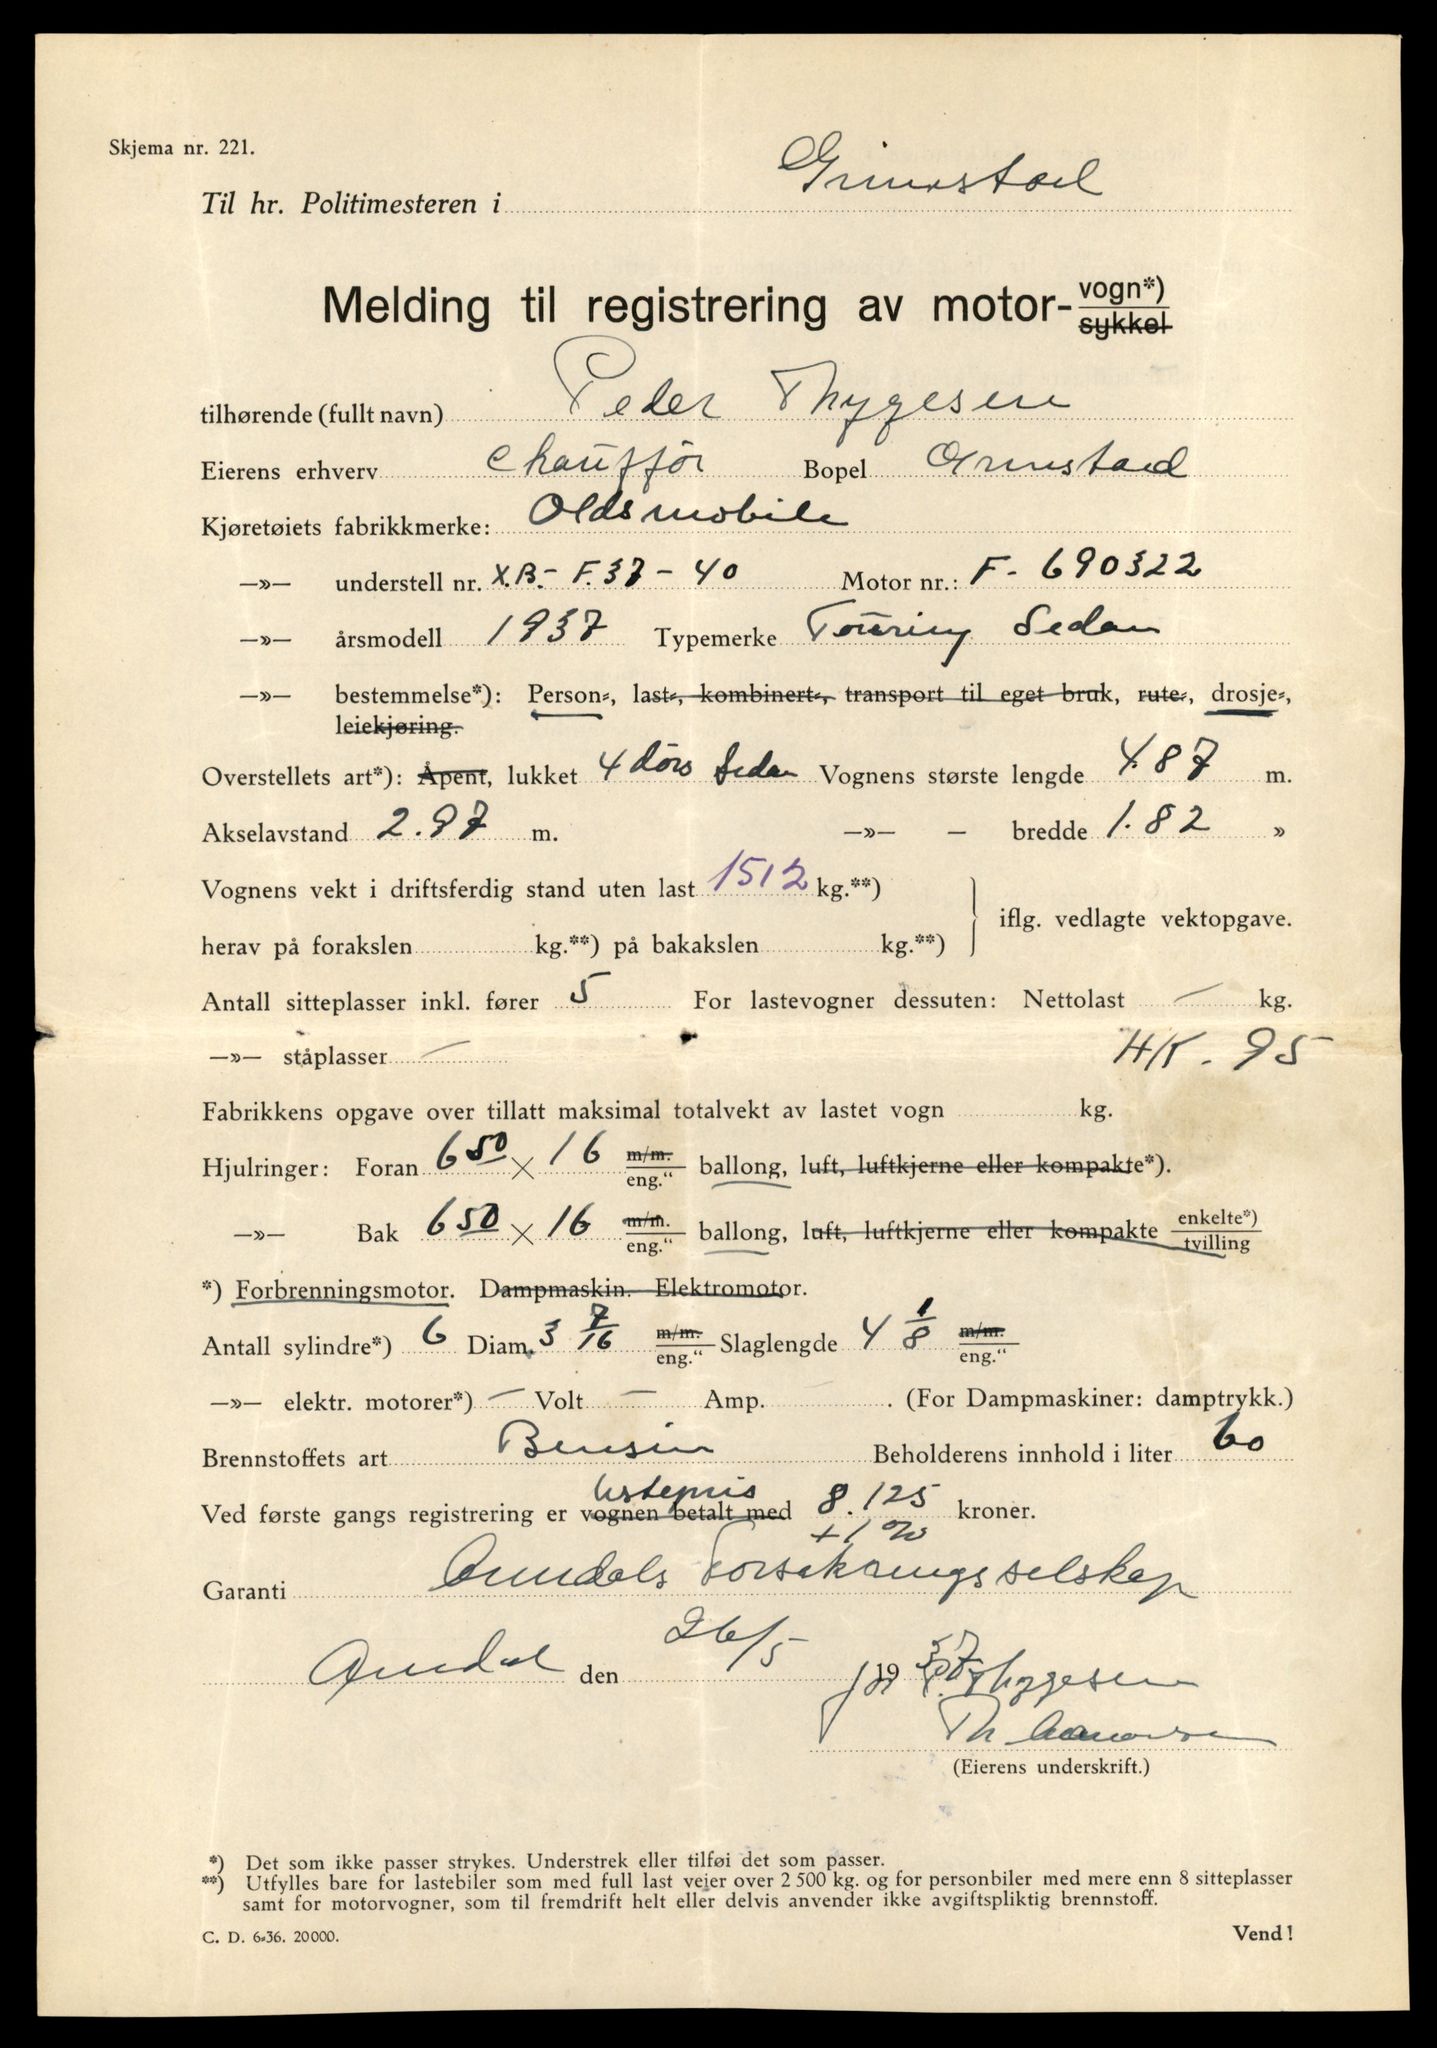 Skjema nr. 221.
Til hr. Politimesteren i Grimstad
Melding til registrering av motor-vogn*)
sykkel
tilhørende (fullt navn) Peder Thygesen
Eierens erhverv chauffør Bopel Grimstad
Kjøretøiets fabrikkmerke: Oldsmobile
—»— understell nr. X.B.- F.37 - 40 Motor nr.: F- 690322
—»— årsmodell 1937 Typemerke Touring Sedan
—»— bestemmelse*): Person-, last-, kombinert-, transport til eget bruk, rute-, drosje-,
leiekjøring.
Overstellets art*): Åpent, lukket 4 dørs Sedan Vognens største lengde 4.87 m.
Akselavstand 2.97 m. —»— – bredde 1.82 »
Vognens vekt i driftsferdig stand uten last 1512 kg.**)
iflg. vedlagte vektopgave.
herav på forakslen kg.**) på bakakslen kg.**)
Antall sitteplasser inkl. fører 5 For lastevogner dessuten: Nettolast — kg.
—»— ståplasser — HK. 95
Fabrikkens opgave over tillatt maksimal totalvekt av lastet vogn kg.
Hjulringer: Foran 650 × 16 m/m. eng." ballong, luft, luftkjerne eller kompakte*).
—»— Bak 650 × 16 m/m. eng." ballong, luft, luftkjerne eller kompakte enkelte*) tvilling
*) Forbrenningsmotor. Dampmaskin. Elektromotor.
Antall sylindre*) 6 Diam. 3 7/16 m/m. eng." Slaglengde 4 1/8 m/m. eng."
—»— elektr. motorer*) — Volt — Amp. . (For Dampmaskiner: damptrykk.)
Brennstoffets art Bensin Beholderens innhold i liter 60
listepris
Ved første gangs registrering er vognen betalt med 8.125 kroner.
+1%
Garanti Arendals Forsikringsselskap
Arendal den 26/5 1937
P. Thygesen
Th.
(Eierens underskrift.)
*) Det som ikke passer strykes. Understrek eller tilføi det som passer.
**) Utfylles bare for lastebiler som med full last veier over 2 500 kg. og for personbiler med mere enn 8 sitteplasser
samt for motorvogner, som til fremdrift helt eller delvis anvender ikke avgiftspliktig brennstoff.
C. D. 6-36. 20000. Vend!